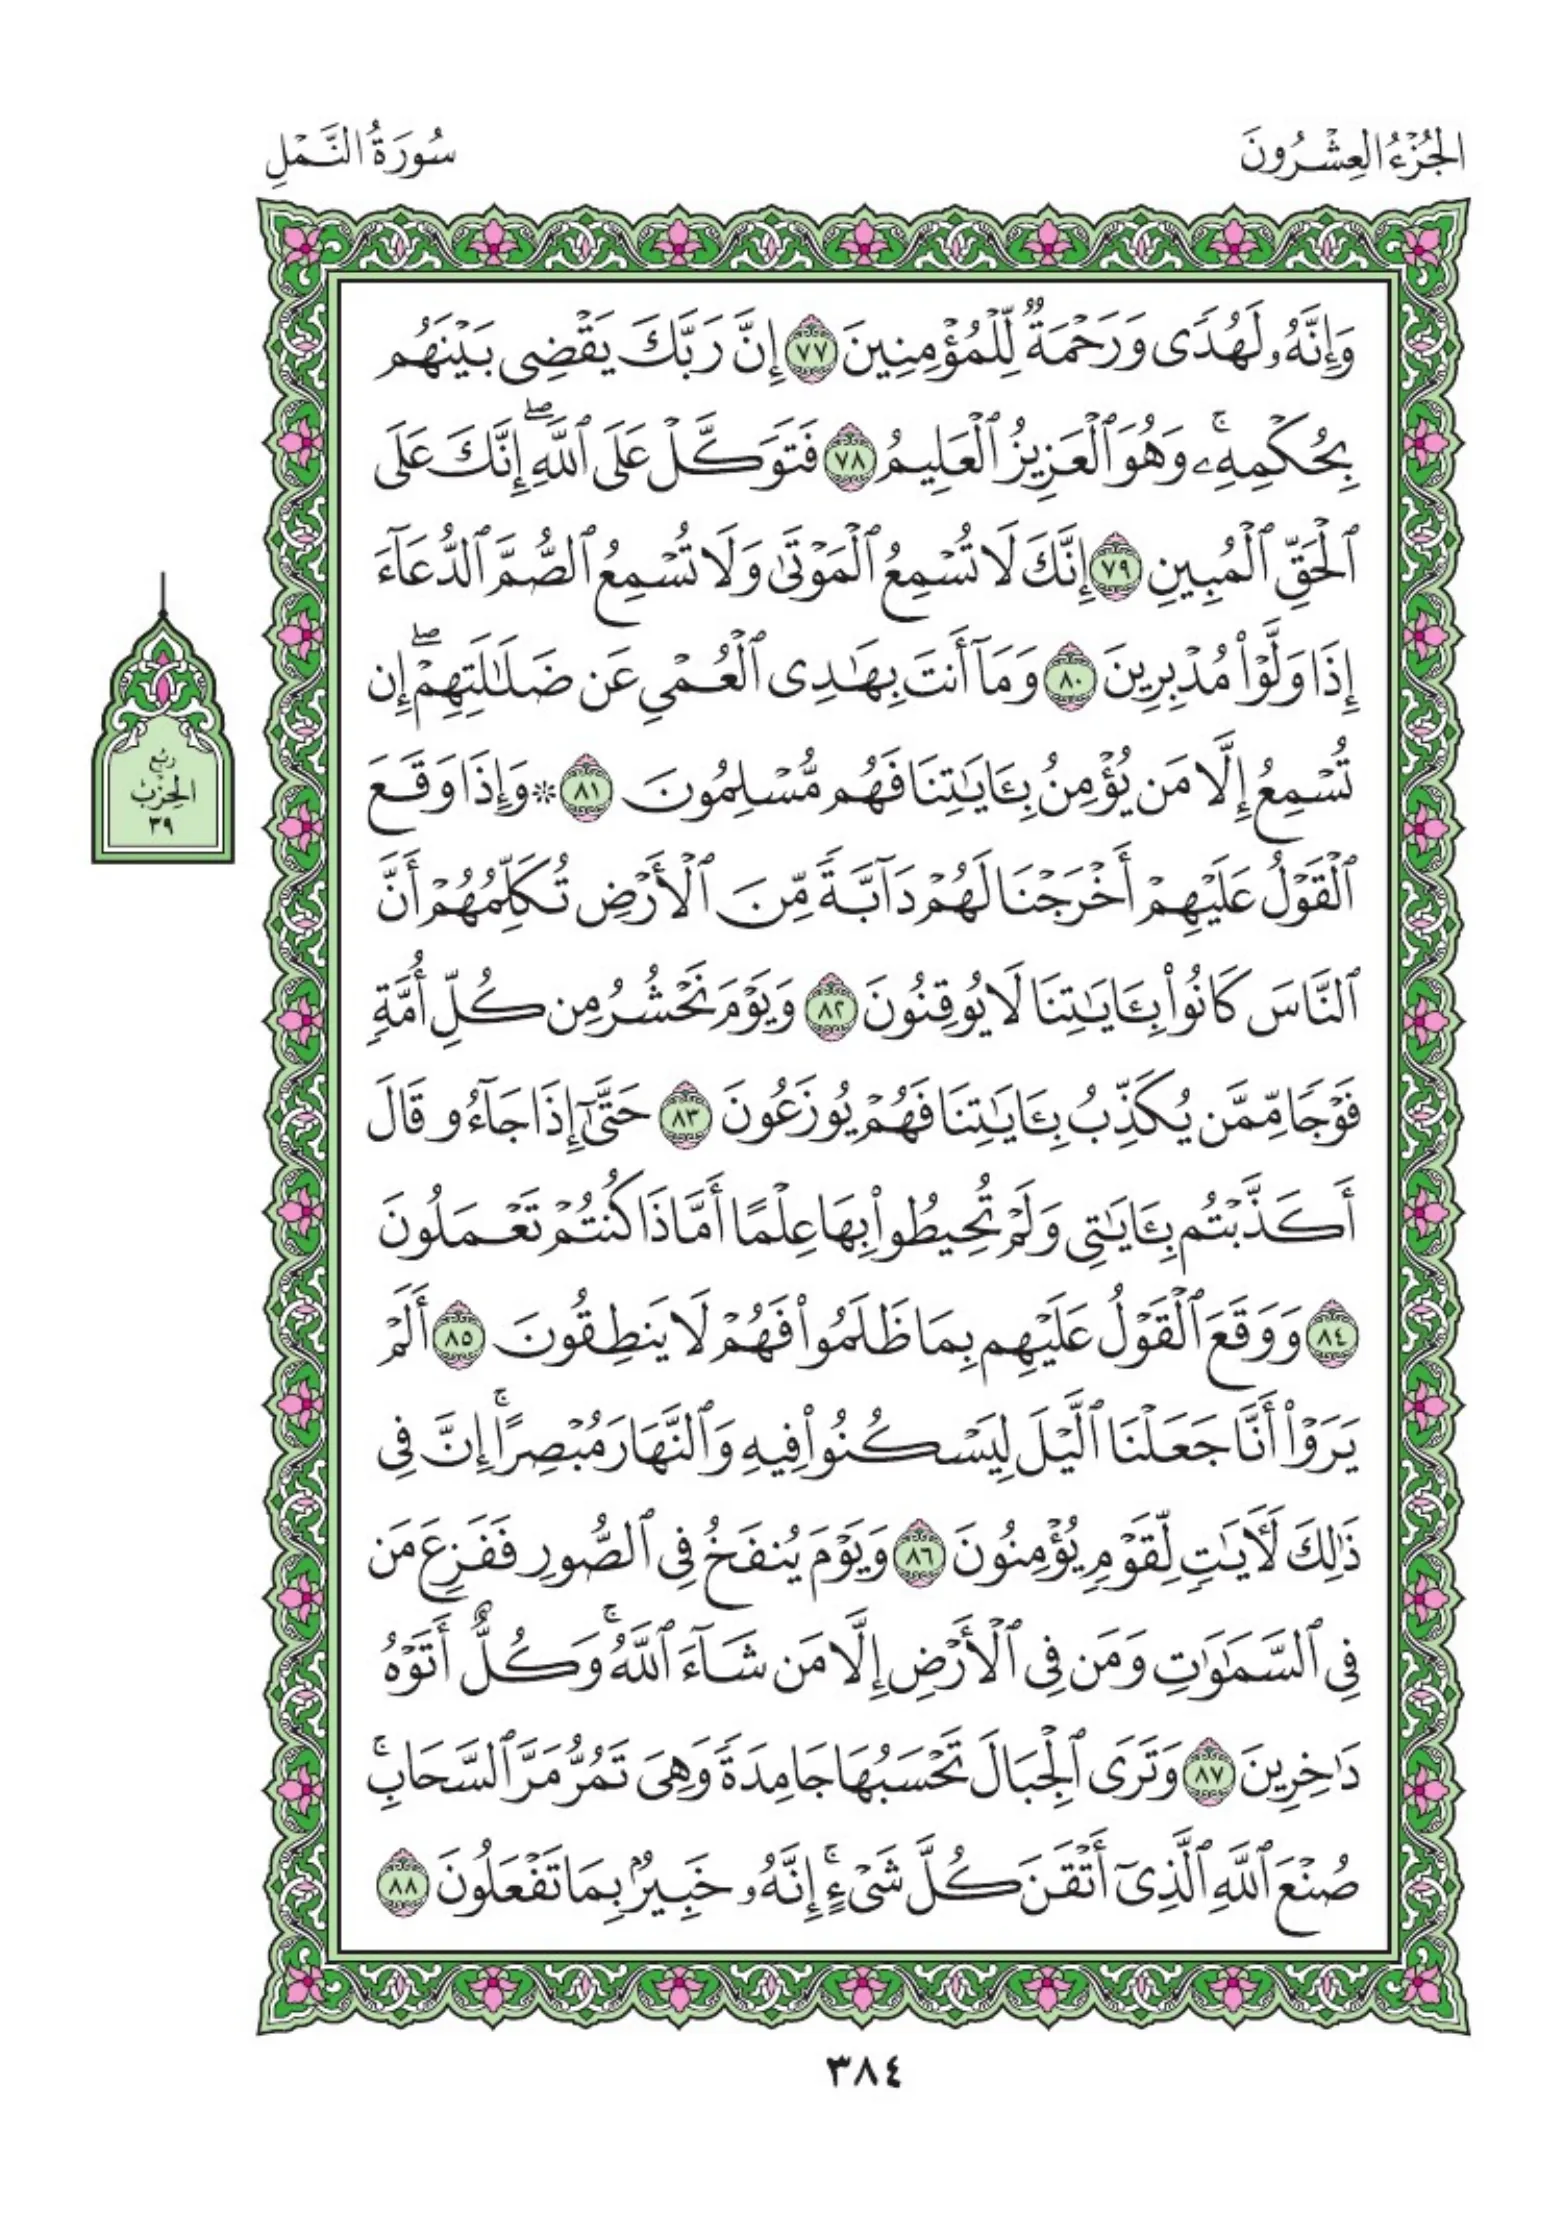 الجُزْءُ العِشْرُونَ
سُورَةُ النَّمْلِ
وَإِنَّهُۥ لَهُدًى وَرَحْمَةٌ لِّلْمُؤْمِنِينَ ٧٧ إِنَّ رَبَّكَ يَقْضِى بَيْنَهُم
بِحُكْمِهِۦۚ وَهُوَ ٱلْعَزِيزُ ٱلْعَلِيمُ ٧٨ فَتَوَكَّلْ عَلَى ٱللَّهِۖ إِنَّكَ عَلَى
ٱلْحَقِّ ٱلْمُبِينِ ٧٩ إِنَّكَ لَا تُسْمِعُ ٱلْمَوْتَىٰ وَلَا تُسْمِعُ ٱلصُّمَّ ٱلدُّعَآءَ
إِذَا وَلَّوْا۟ مُدْبِرِينَ ٨٠ وَمَآ أَنتَ بِهَـٰدِى ٱلْعُمْىِ عَن ضَلَـٰلَتِهِمْۖ إِن
تُسْمِعُ إِلَّا مَن يُؤْمِنُ بِـَٔايَـٰتِنَا فَهُم مُّسْلِمُونَ ٨١ * وَإِذَا وَقَعَ
ٱلْقَوْلُ عَلَيْهِمْ أَخْرَجْنَا لَهُمْ دَآبَّةً مِّنَ ٱلْأَرْضِ تُكَلِّمُهُمْ أَنَّ
ٱلنَّاسَ كَانُوا۟ بِـَٔايَـٰتِنَا لَا يُوقِنُونَ ٨٢ وَيَوْمَ نَحْشُرُ مِن كُلِّ أُمَّةٍ
فَوْجًا مِّمَّن يُكَذِّبُ بِـَٔايَـٰتِنَا فَهُمْ يُوزَعُونَ ٨٣ حَتَّىٰٓ إِذَا جَآءُو قَالَ
أَكَذَّبْتُم بِـَٔايَـٰتِى وَلَمْ تُحِيطُوا۟ بِهَا عِلْمًا أَمَّاذَا كُنتُمْ تَعْمَلُونَ
٨٤ وَوَقَعَ ٱلْقَوْلُ عَلَيْهِم بِمَا ظَلَمُوا۟ فَهُمْ لَا يَنطِقُونَ ٨٥ أَلَمْ
يَرَوْا۟ أَنَّا جَعَلْنَا ٱلَّيْلَ لِيَسْكُنُوا۟ فِيهِ وَٱلنَّهَارَ مُبْصِرًاۚ إِنَّ فِى
ذَٰلِكَ لَـَٔايَـٰتٍ لِّقَوْمٍ يُؤْمِنُونَ ٨٦ وَيَوْمَ يُنفَخُ فِى ٱلصُّورِ فَفَزِعَ مَن
فِى ٱلسَّمَـٰوَٰتِ وَمَن فِى ٱلْأَرْضِ إِلَّا مَن شَآءَ ٱللَّهُۚ وَكُلٌّ أَتَوْهُ
دَٰخِرِينَ ٨٧ وَتَرَى ٱلْجِبَالَ تَحْسَبُهَا جَامِدَةً وَهِىَ تَمُرُّ مَرَّ ٱلسَّحَابِۚ
صُنْعَ ٱللَّهِ ٱلَّذِىٓ أَتْقَنَ كُلَّ شَىْءٍۚ إِنَّهُۥ خَبِيرٌۢ بِمَا تَفْعَلُونَ ٨٨
ربع
الحِزْب
٣٩
٣٨٤